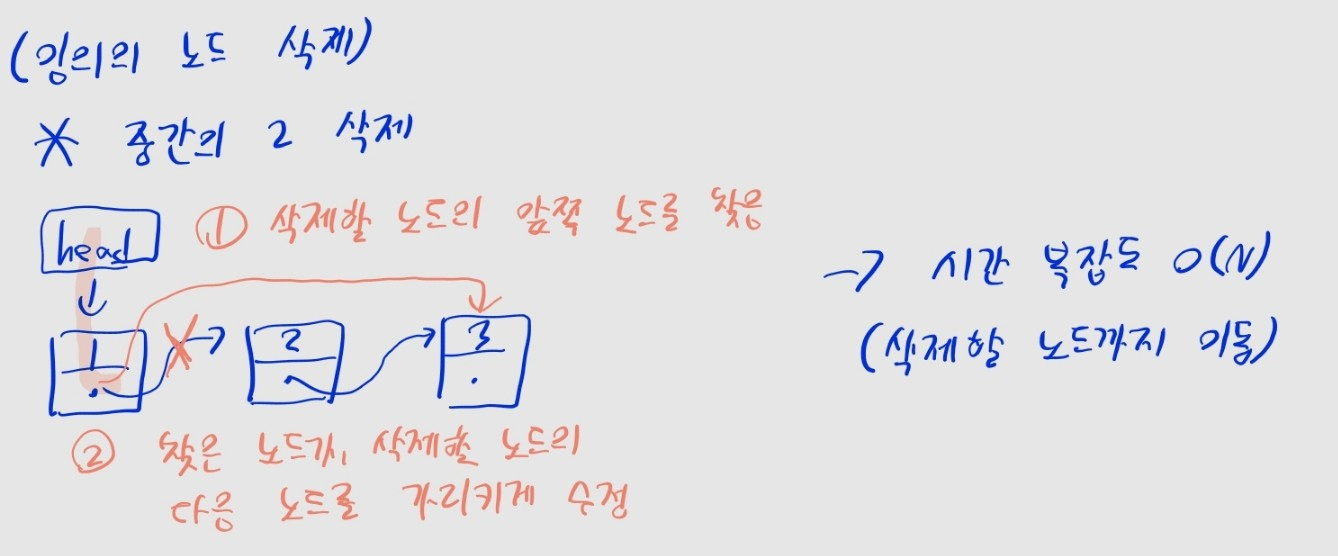 (임의의 노드 삭제)
* 중간의 2 삭제
head
① 삭제할 노드의 앞쪽 노드를 찾음
→ 시간 복잡도 O(N)
(삭제할 노드까지 이동)
1
2
3
② 찾은 노드가, 삭제할 노드의
다음 노드를 가리키게 수정